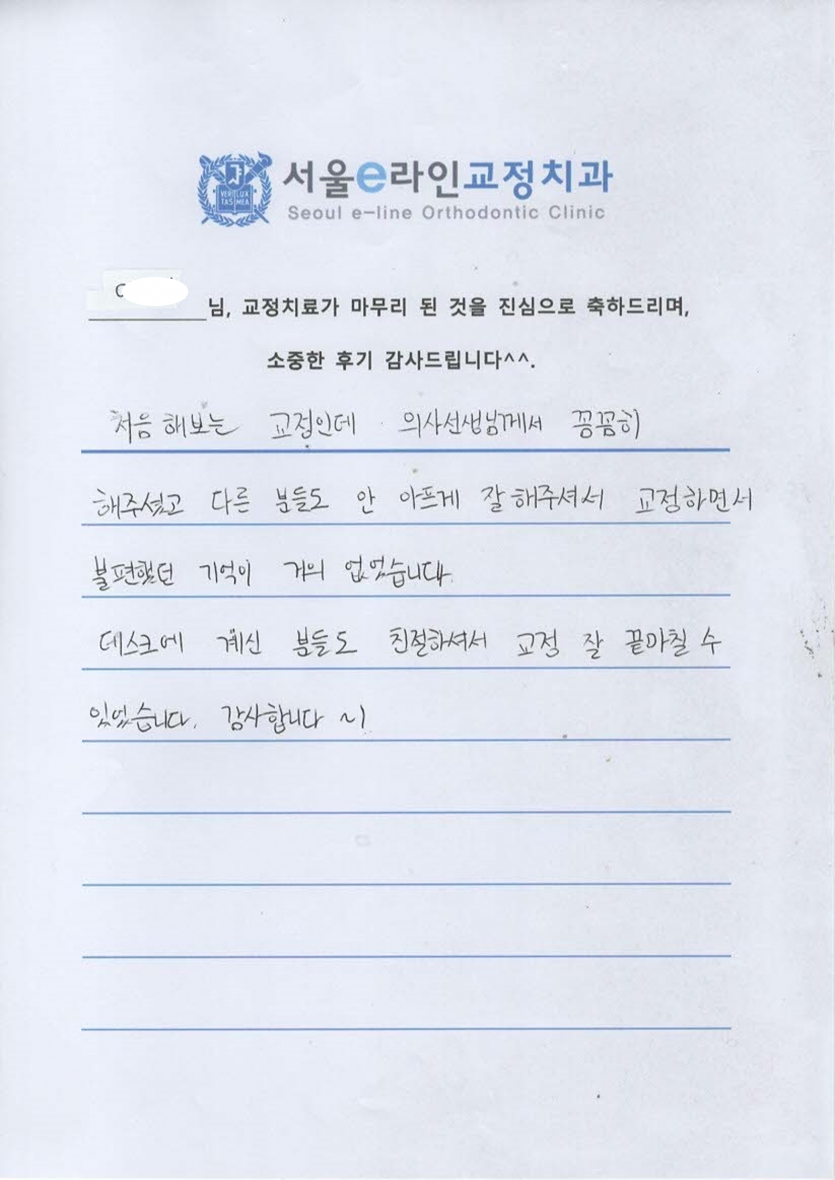 서울e라인교정치과
Seoul e-line Orthodontic Clinic
VERI LUX
TAS MEA
님, 교정치료가 마무리 된 것을 진심으로 축하드리며,
소중한 후기 감사드립니다^^.
처음 해보는 교정인데 의사선생님께서 꼼꼼히
해주셨고 다른 분들도 안 아프게 잘 해주셔서 교정하면서
불편했던 기억이 거의 없었습니다.
데스크에 계신 분들도 친절하셔서 교정 잘 끝마칠 수
있었습니다. 감사합니다 ~!